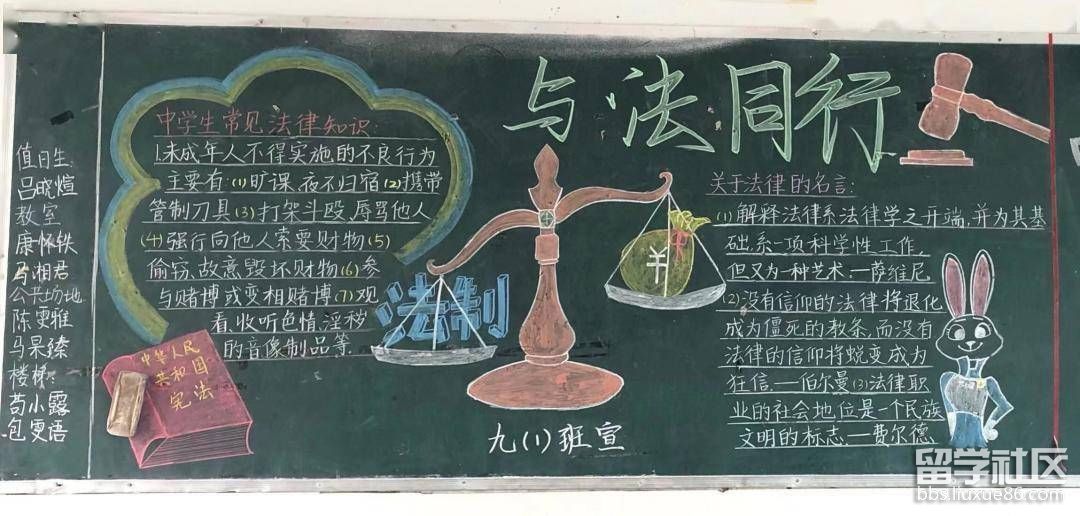 值日生:
吕晓煊
教室
康怀轶
马湘君
公共场地
陈雯雅
马果臻
楼梯:
苟小露
包雯语
与法同行
中学生常见法律知识:
1.未成年人不得实施的不良行为
主要有:(1)旷课,夜不归宿(2)携带
管制刀具(3)打架斗殴,辱骂他人
(4)强行向他人索要财物(5)
偷窃,故意毁坏财物(6)参
与赌博或变相赌博(7)观
看,收听色情,淫秽
的音像制品等
中华人民
共和国
宪法
法制
¥
中
九(1)班宣
关于法律的名言:
(1)解释法律系法律学之开端,并为其基
础,系一项科学性工作,
但又为一种艺术.—萨维尼
(2)没有信仰的法律将退化
成为僵死的教条,而没有
法律的信仰将蜕变成为
狂信.—伯尔曼(3)法律职
业的社会地位是一个民族
文明的标志.—费尔德
留学社区
bbs.liuxue86.com